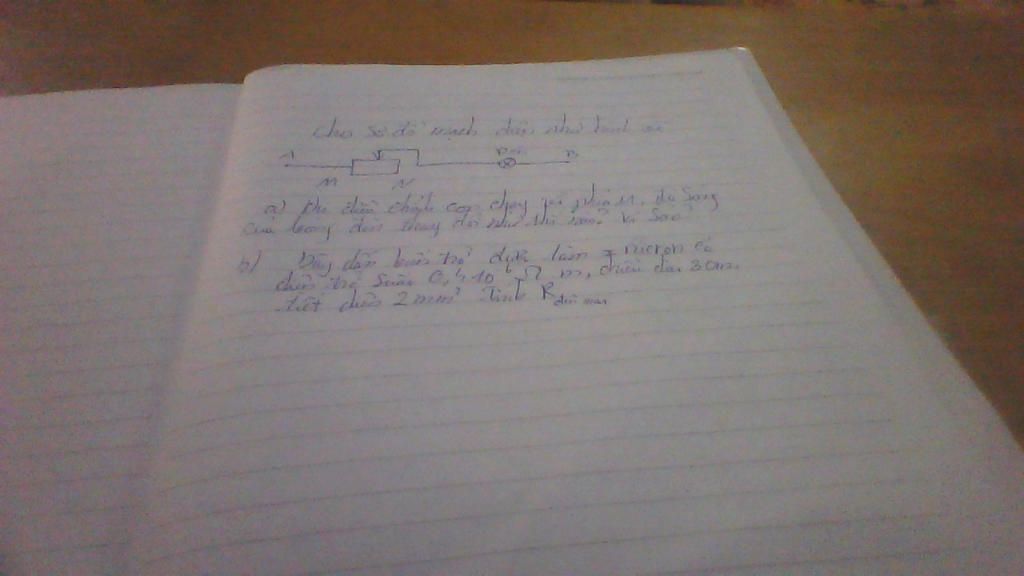 Cho sơ đồ mạch điện như hình vẽ
A Đèn B
M N
a) Khi điều chỉnh con chạy về phía M, độ sáng
của bóng đèn thay đổi như thế nào? Vì sao?
b) Dây dẫn biến trở được làm = nicrom có
điện trở suất m, chiều dài 30m,
tiết diện 2mm² Tính R